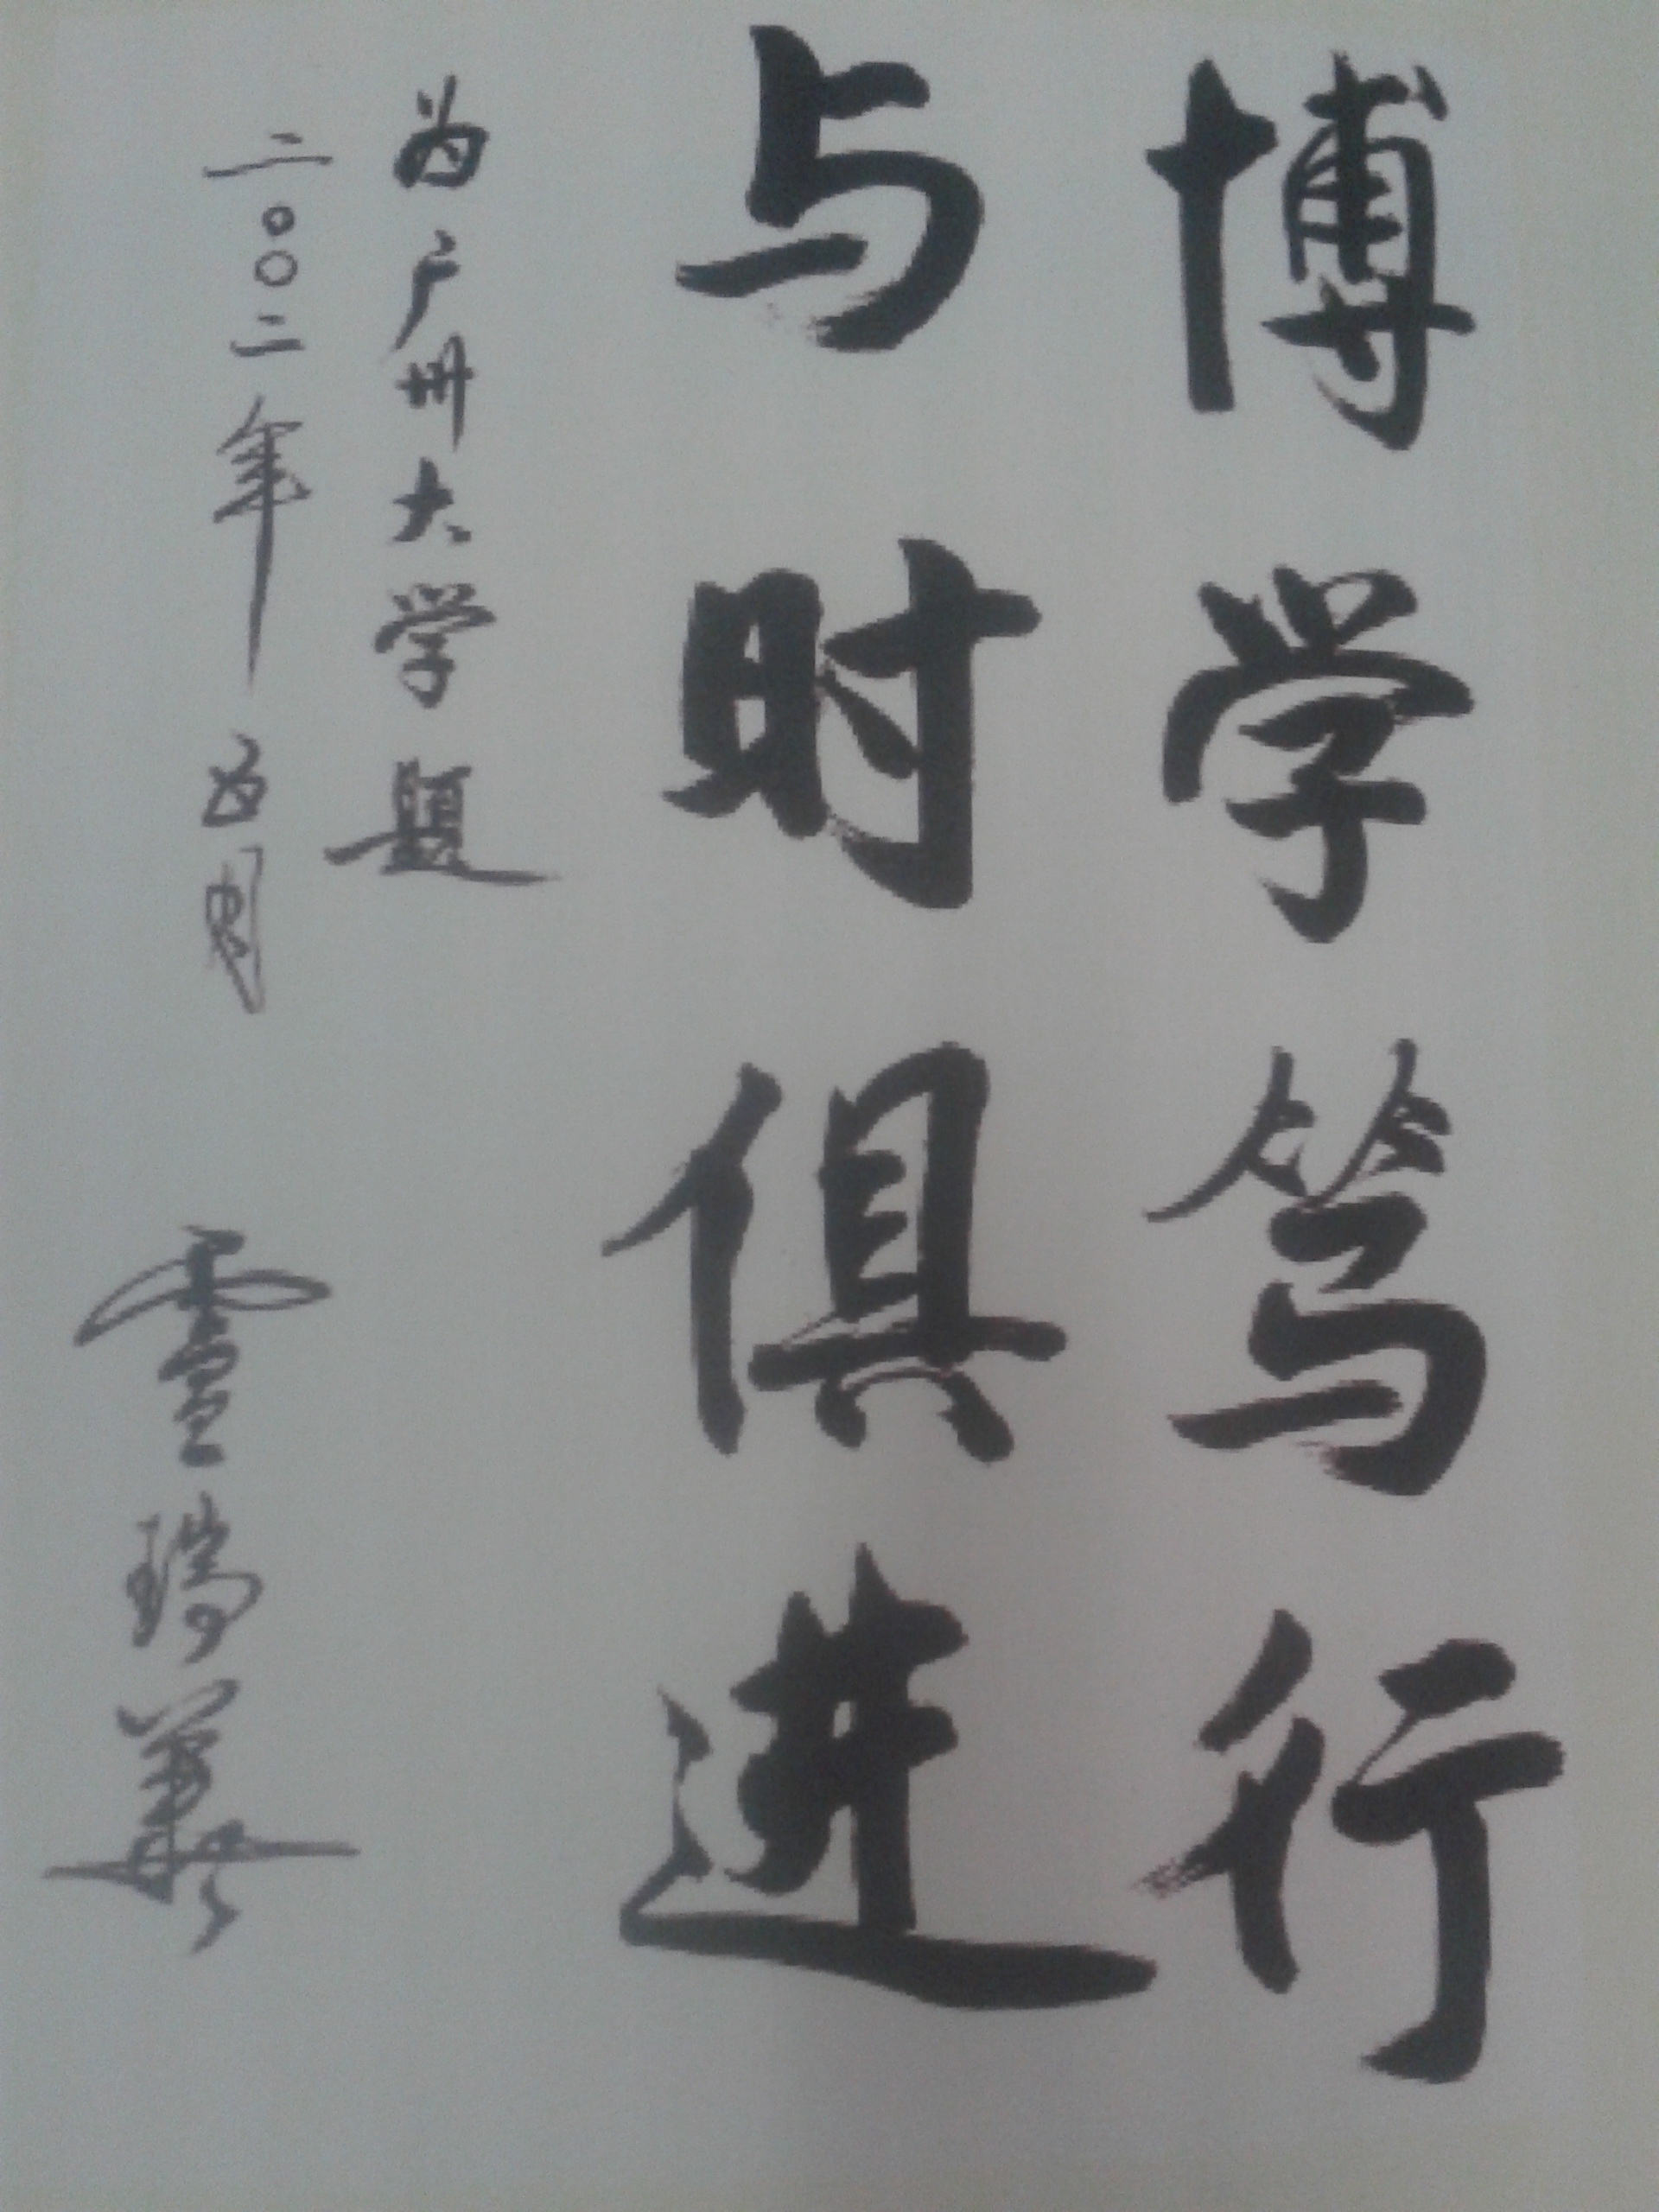 博学笃行
与时俱进
为广州大学题
二〇〇二年五月 雷瑞华